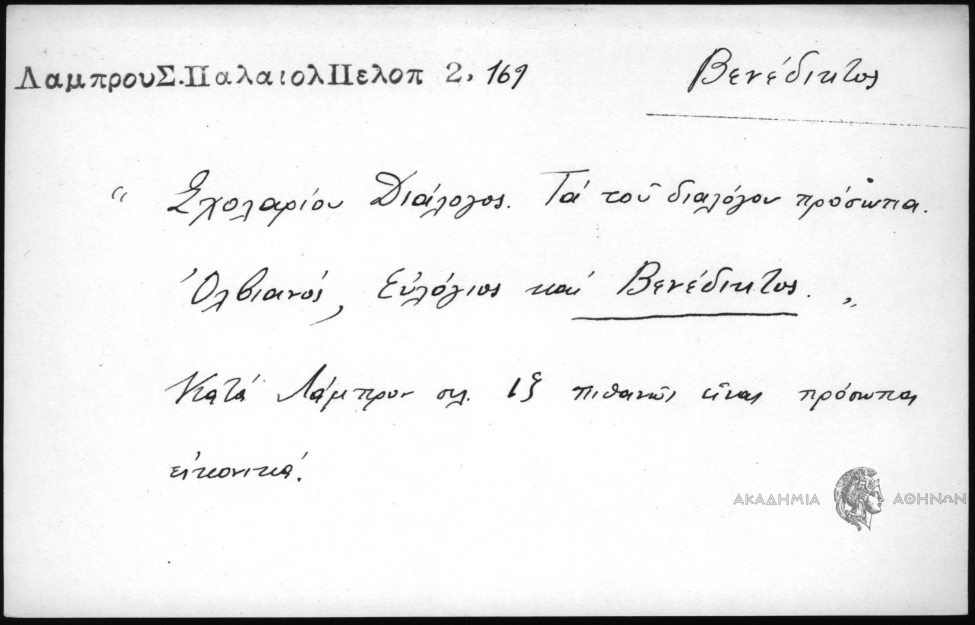 ΛαμπρουΣ.ΠαλαιολΠελοπ 2, 169
Βενέδικτος
“ Σχολαρίου Διάλογος. Τά τοῦ διαλόγου πρόσωπα.
Ὀλβιανός, Εὐλόγιος καί Βενέδικτος. „
Κατά Λάμπρον σελ. ιξ πιθανῶς εἶναι πρόσωπα
εἰκονικά.
ΑΚΑΔΗΜΙΑ ΑΘΗΝΩΝ